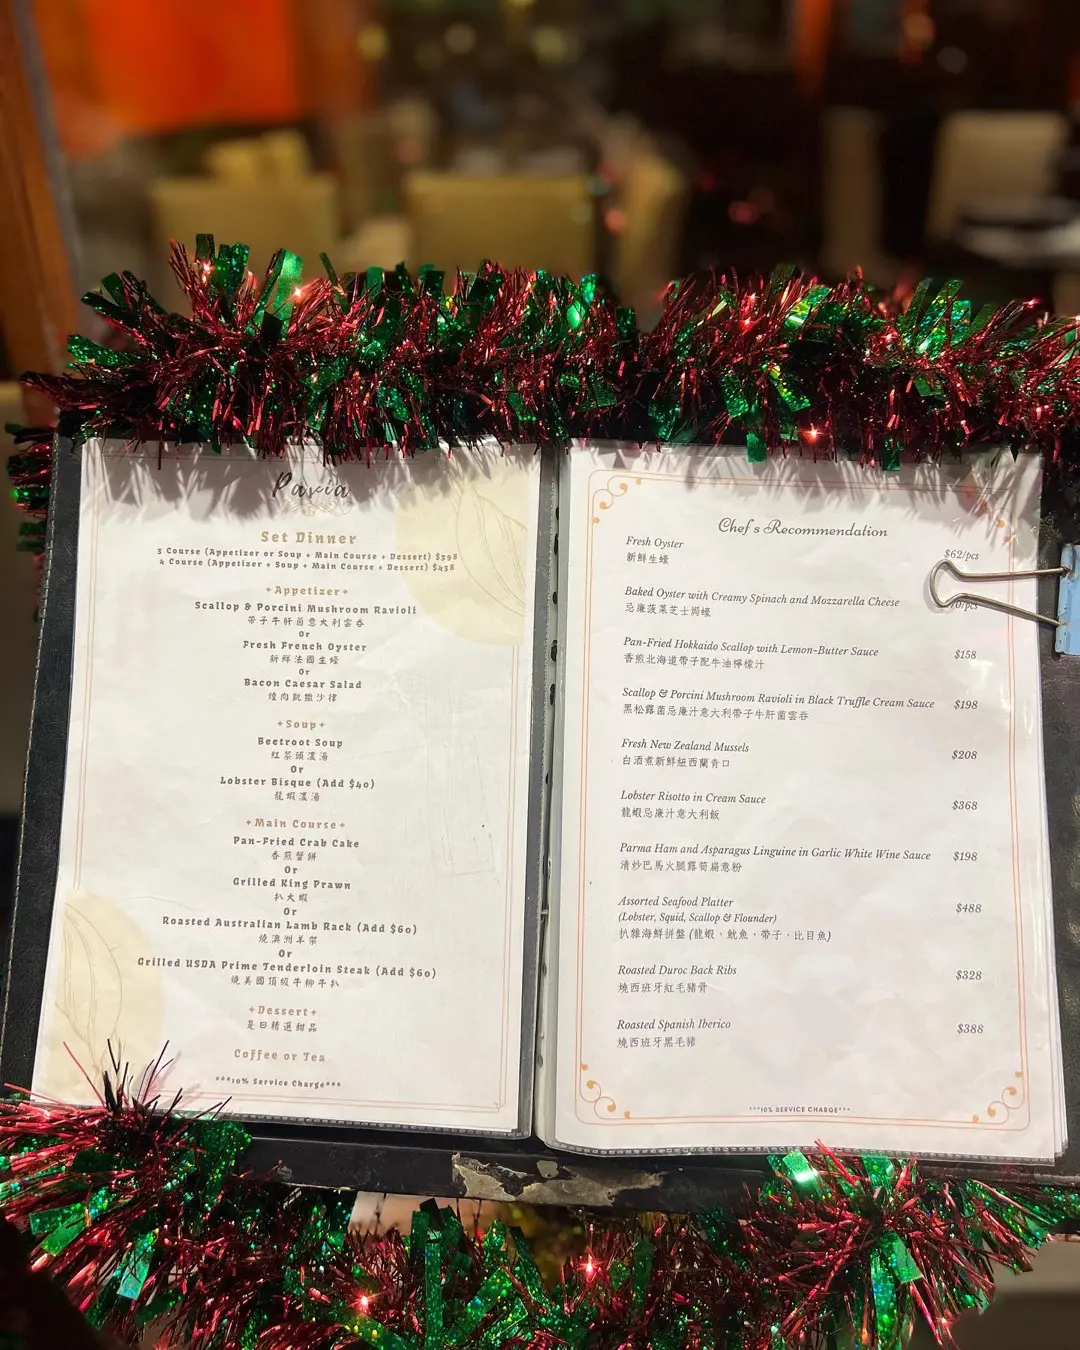 Pavia
Set Dinner
3 Course (Appetizer or Soup + Main Course + Dessert) $398
4 Course (Appetizer + Soup + Main Course + Dessert) $438
+Appetizer+
Scallop & Porcini Mushroom Ravioli
帶子牛肝菌意大利雲吞
Or
Fresh French Oyster
新鮮法國生蠔
Or
Bacon Caesar Salad
煙肉凱撒沙律
+Soup+
Beetroot Soup
紅菜頭濃湯
Or
Lobster Bisque (Add $40)
龍蝦濃湯
+Main Course+
Pan-Fried Crab Cake
香煎蟹餅
Or
Grilled King Prawn
扒大蝦
Or
Roasted Australian Lamb Rack (Add $60)
燒澳洲羊架
Or
Grilled USDA Prime Tenderloin Steak (Add $60)
燒美國頂級牛柳牛扒
+Dessert+
是日精選甜品
Coffee or Tea
***10% Service Charge***
Chef's Recommendation
Fresh Oyster $62/pcs
新鮮生蠔
Baked Oyster with Creamy Spinach and Mozzarella Cheese
忌廉菠菜芝士焗蠔
Pan-Fried Hokkaido Scallop with Lemon-Butter Sauce $158
香煎北海道帶子配牛油檸檬汁
Scallop & Porcini Mushroom Ravioli in Black Truffle Cream Sauce $198
黑松露菌忌廉汁意大利帶子牛肝菌雲吞
Fresh New Zealand Mussels $208
白酒煮新鮮紐西蘭青口
Lobster Risotto in Cream Sauce $368
龍蝦忌廉汁意大利飯
Parma Ham and Asparagus Linguine in Garlic White Wine Sauce $198
清炒巴馬火腿露筍扁意粉
Assorted Seafood Platter $488
(Lobster, Squid, Scallop & Flounder)
扒雜海鮮拼盤 (龍蝦、魷魚、帶子、比目魚)
Roasted Duroc Back Ribs $328
燒西班牙紅毛豬骨
Roasted Spanish Iberico $388
燒西班牙黑毛豬
***10% SERVICE CHARGE***